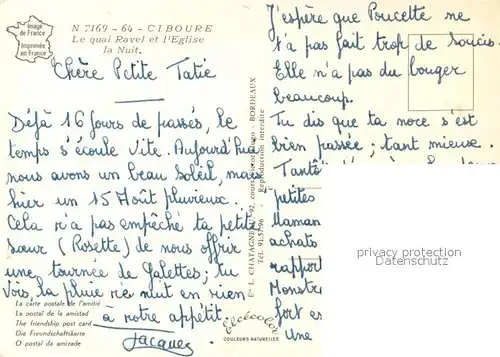 Image
de France
Imprimée
en France
N 7169 - 64 - CIBOURE
Le quai Ravel et l'Eglise
la Nuit.
Chère Petite Tatie
Déjà 16 jours de passés, le
temps s'écoule vite. Aujourd'hui
nous avons un beau Soleil, mais
hier un 15 Août pluvieux.
Cela n'a pas empêché ta petite
sœur (Rosette) de nous offrir
une tournée de Galettes; tu
vois, la pluie ne nuit en rien
à notre appétit.
Jacques
La carte postale de l'amitié
La postal de la amistad
The friendship post card
Die Freundschaftskarte
O postal da amizade
Ets L. CHATAGNEAU 92, cours - BORDEAUX
Tél. 91.57.96 Reproduction interdite
Elcécolor
COULEURS NATURELLES
J'espère que Poucette ne
t'a pas fait trop de soucis.
Elle n'a pas du bouger
beaucoup.
Tu dis que ta noce s'est
bien passée; tant mieux.
Tantô
petites
Maman
achats
rapport
Monstre
fort es
une
privacy protection
Datenschutz